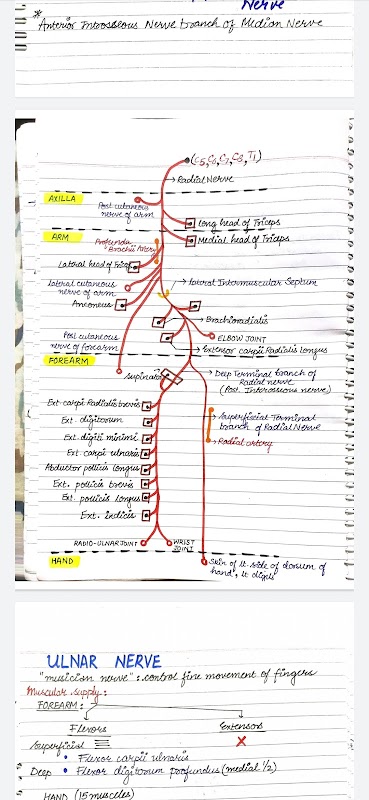 Nerve
* Anterior Interosseous Nerve branch of Median Nerve
(C5, C6, C7, C8, T1)
Radial Nerve
AXILLA
Post cutaneous
nerve of arm
Long head of Triceps
ARM
Medial head of Triceps
Profunda
Brachii Artery
Lateral head of Triceps
lateral Intermuscular Septum
lateral cutaneous
nerve of arm
Anconeus
Brachioradialis
Post cutaneous
nerve of forearm
ELBOW JOINT
Extensor carpii Radialis longus
FOREARM
Supinator
Deep Terminal branch of
Radial nerve
(Post. Interosseous nerve)
Ext carpii Radialis brevis
Ext. digitorum
Superficial Terminal
branch of Radial Nerve
Ext. digiti minimi
Radial artery
Ext. carpi ulnaris
Abductor pollicis longus
Ext. pollicis brevis
Ext. pollicis longus
Ext. indicis
RADIO-ULNAR JOINT
WRIST
JOINT
HAND
Skin of lt side of dorsum of
hand, lt digits
ULNAR NERVE
"musician nerve" : control fine movement of fingers
Muscular supply:
FOREARM:
Flexors
Extensors
Superficial
X
• Flexor carpii ulnaris
Deep • Flexor digitorum profundus (medial 1/2)
HAND (15 muscles)